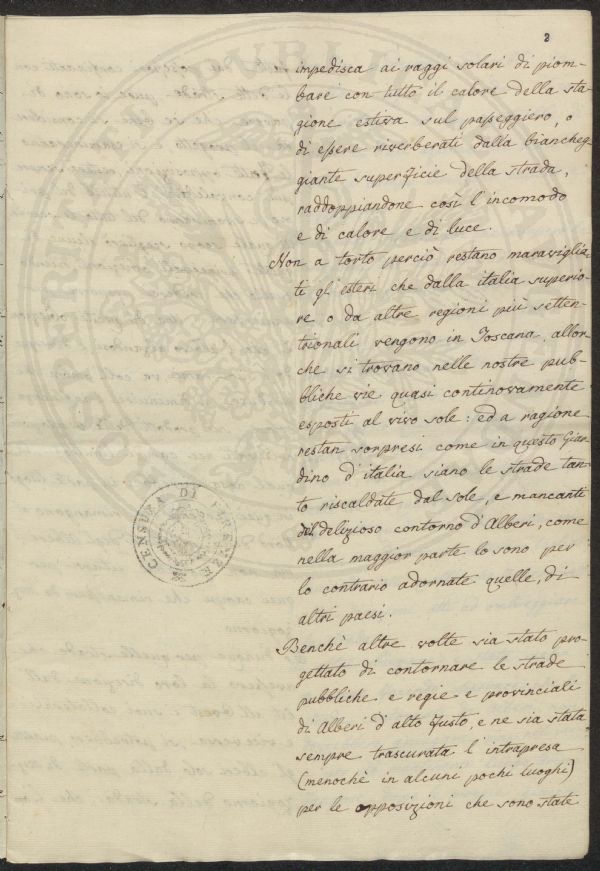 2
impedisca ai raggi solari di piom-
bare con tutto il calore della sta-
gione estiva sul passeggiero, o
di essere riverberati dalla biancheg-
giante superficie della strada,
raddoppiandone così l'incomodo
e di calore e di luce.
Non a torto perciò restano maraviglia-
ti gl'esteri che dalla italia superio-
re o da altre regioni più setten-
trionali vengono in Toscana, allor-
chè si trovano nelle nostre pub-
bliche vie quasi continovamente
esposti al vivo sole: ed a ragione
restan sorpresi come in questo Giar-
dino d'italia siano le strade tan-
to riscaldate dal sole, e mancanti
del delizioso contorno d'Alberi, come
nella maggior parte lo sono per
lo contrario adornate quelle, di
altri paesi.
Benchè altre volte sia stato pro-
gettato di contornare le strade
pubbliche e regie e provinciali
di Alberi d'alto fusto, e ne sia stata
sempre trascurata l'intrapresa
(menochè in alcuni pochi luoghi)
per le opposizioni che sono state
CENSURA DI FIRENZE